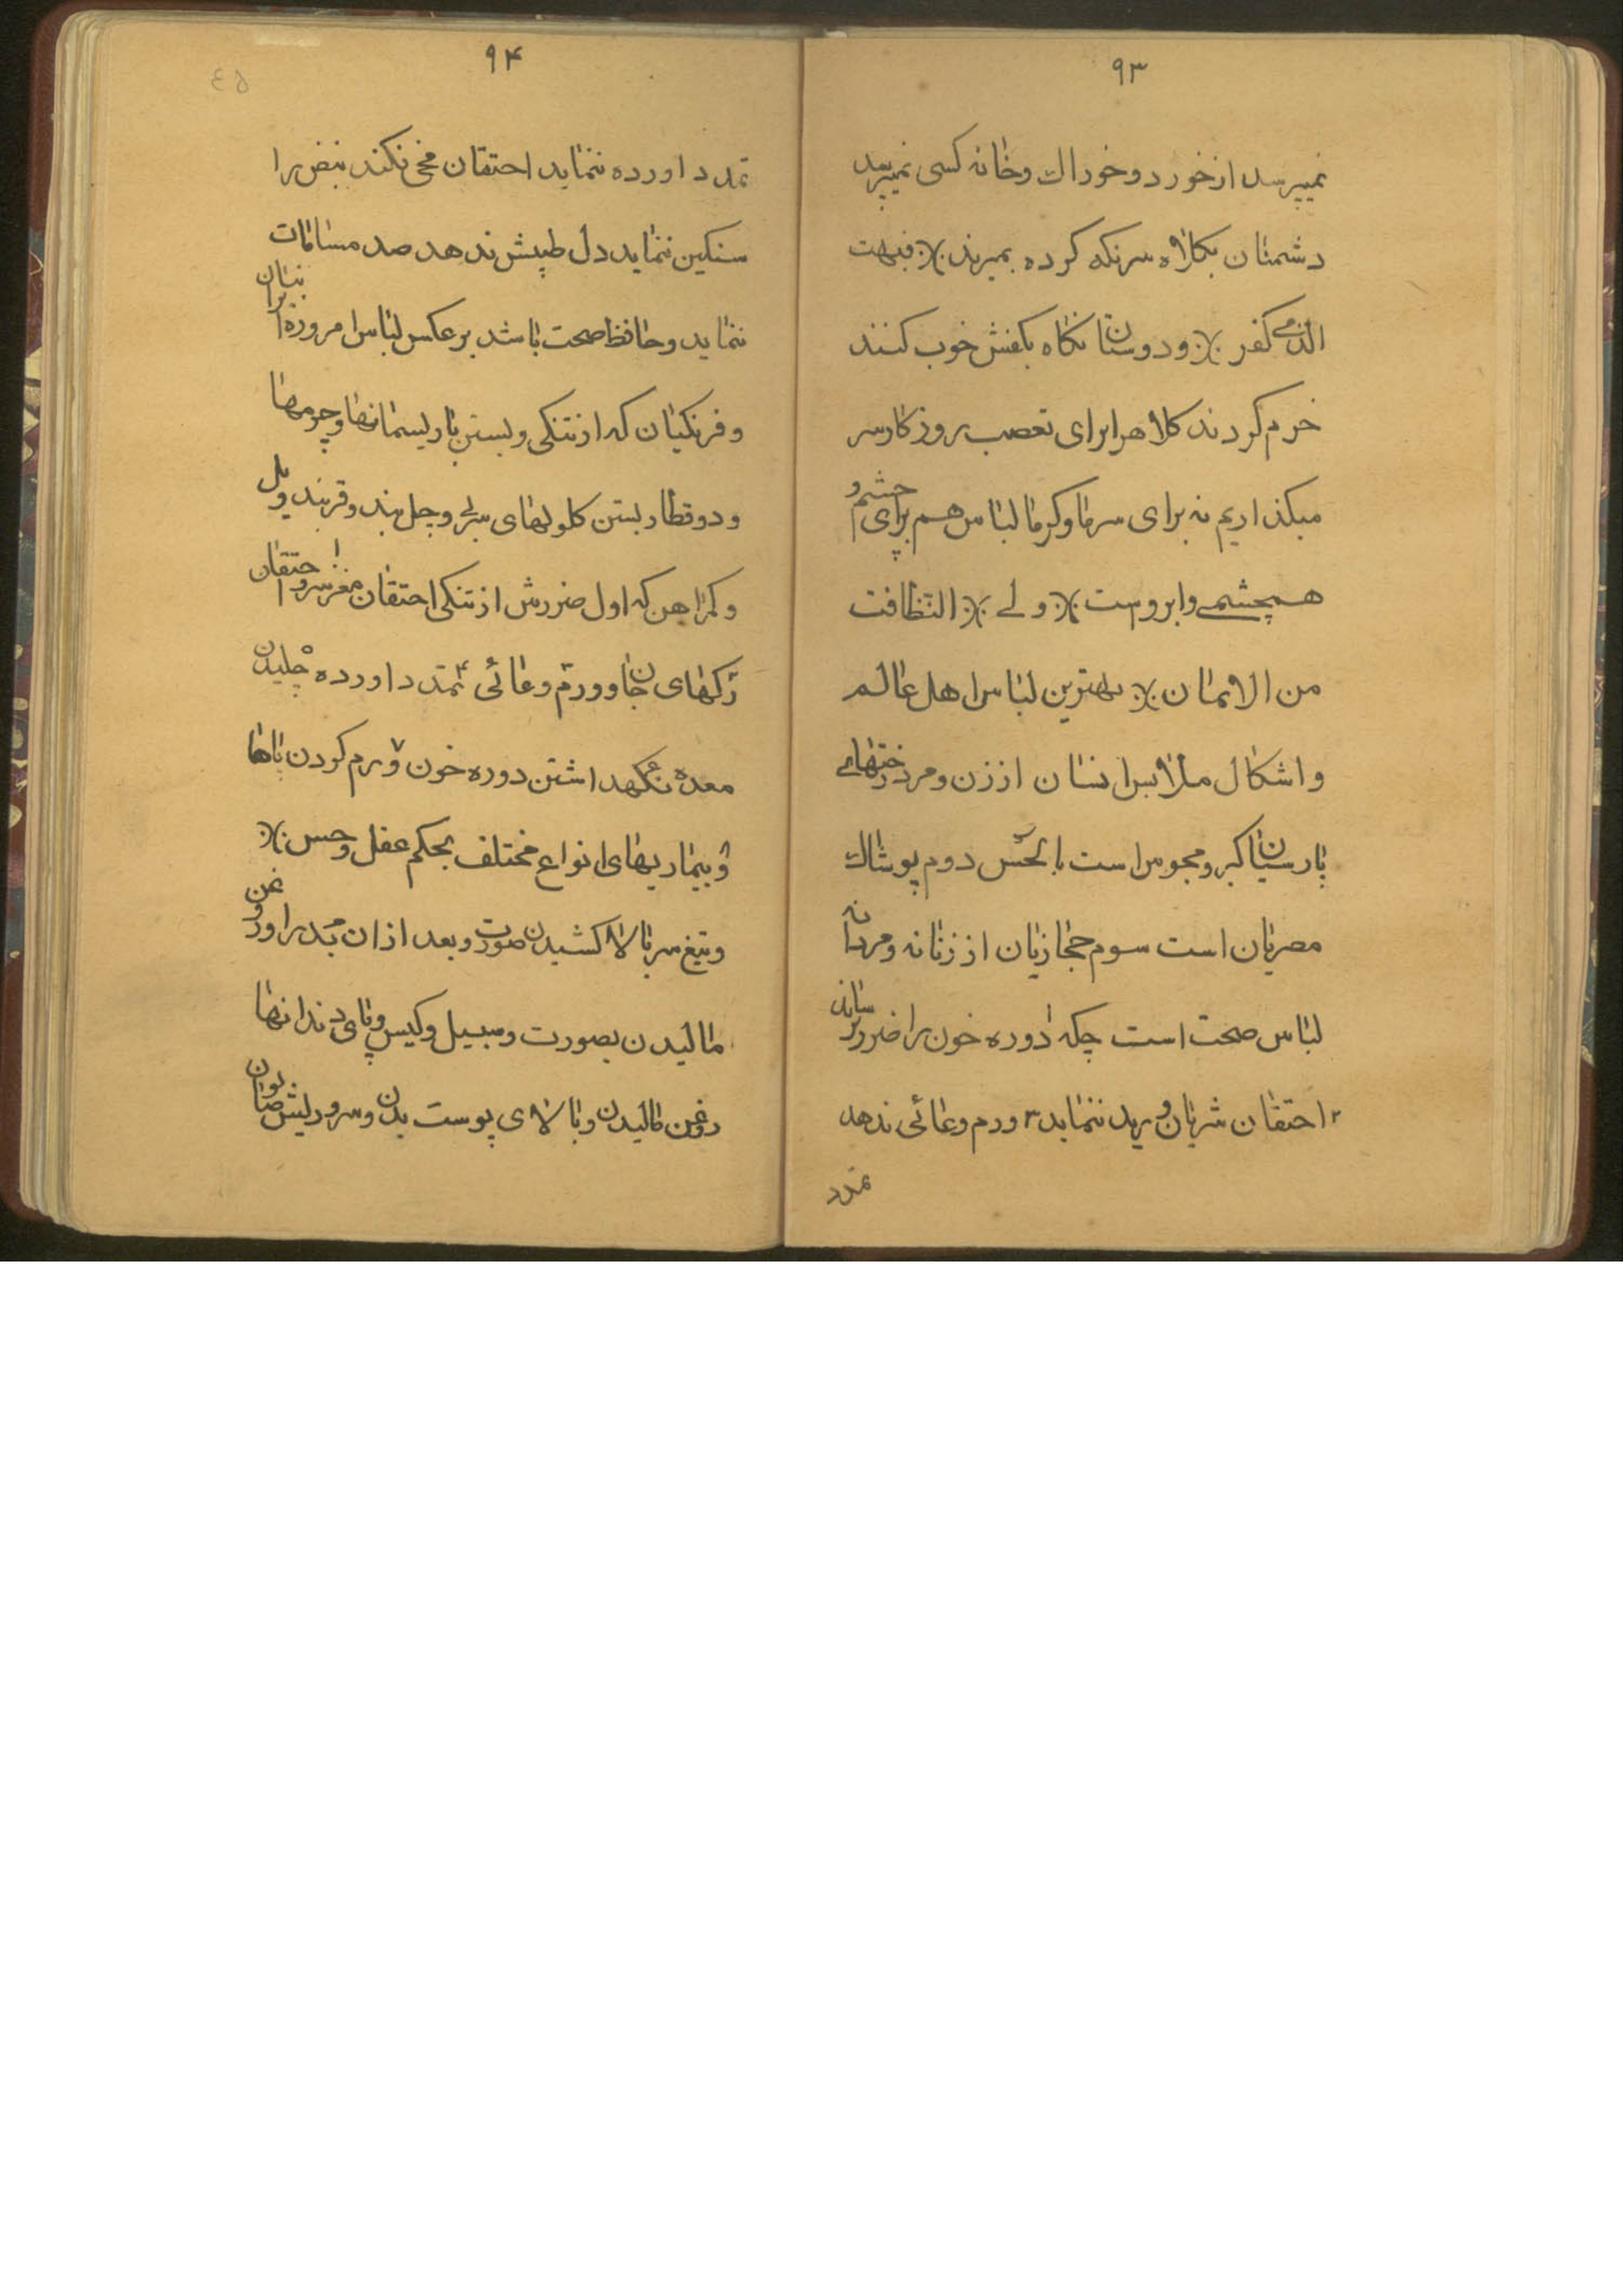 ۹۳
نمیپرسد از خورد و خوراك و خانه کسی نمیپرسد
دشمنان بکلاه سرنکه کرده بمیرند ٪ فبهت
الذی کفر ٪ و دوستان تا نکاه بکفش خوب کنند
خرم کردند کلاه را برای تعصب روزکار سر
میکذاریم نه برای سرما و کرما لباس هم برای چشم و
همچشمے و ابروست ٪ ولے ٪ النظافت
من الایمان ٪ بهترین لباس اهل عالم
و اشکال ملابس انسان از زن و مرد رختهاے
پارسیان کبر و مجوس است بالحس دوم پوشاك
مصریان است سوم حجازیان از زنانه و مردانه
لباس صحت است چکه ۱ دوره خون را ضرر نرساند
۲ احتقان شریان و ورید ننماید ۳ ورم وعائی ندهد
تمدد
۹۴
٤٥
تمدد اورده ننماید احتقان مخی نکند نبض را
سنکین ننماید دل طپیش ندهد صد مسامات
ننماید و حافظ صحت باشد برعکس لباس امروزه ایرانیان
و فرنکیان که از تنکی و بستن با ریسمانها و چرمها
و دو قطار بستن کلولهای سربے و چل بند و قربند
و کمر اهن که اول ضررش از تنکی احتقان مغز سر و احتقان
رکهای جان و ورم وعائی ۴ تمدد اورده ۵ چلیدن
معده ۶ نکهداشتن دوره خون ۷ ورم کردن پاها
و بیماریهای انواع مختلف بحکم عقل و حس ٪
و تیغ سر بالا کشیدن صورت و بعد از ان بد را و روغن
مالیدن بصورت و سبیل و کیس و پای دندانها
روغن مالیدن و بالای پوست بدن و سر و ریش صابون